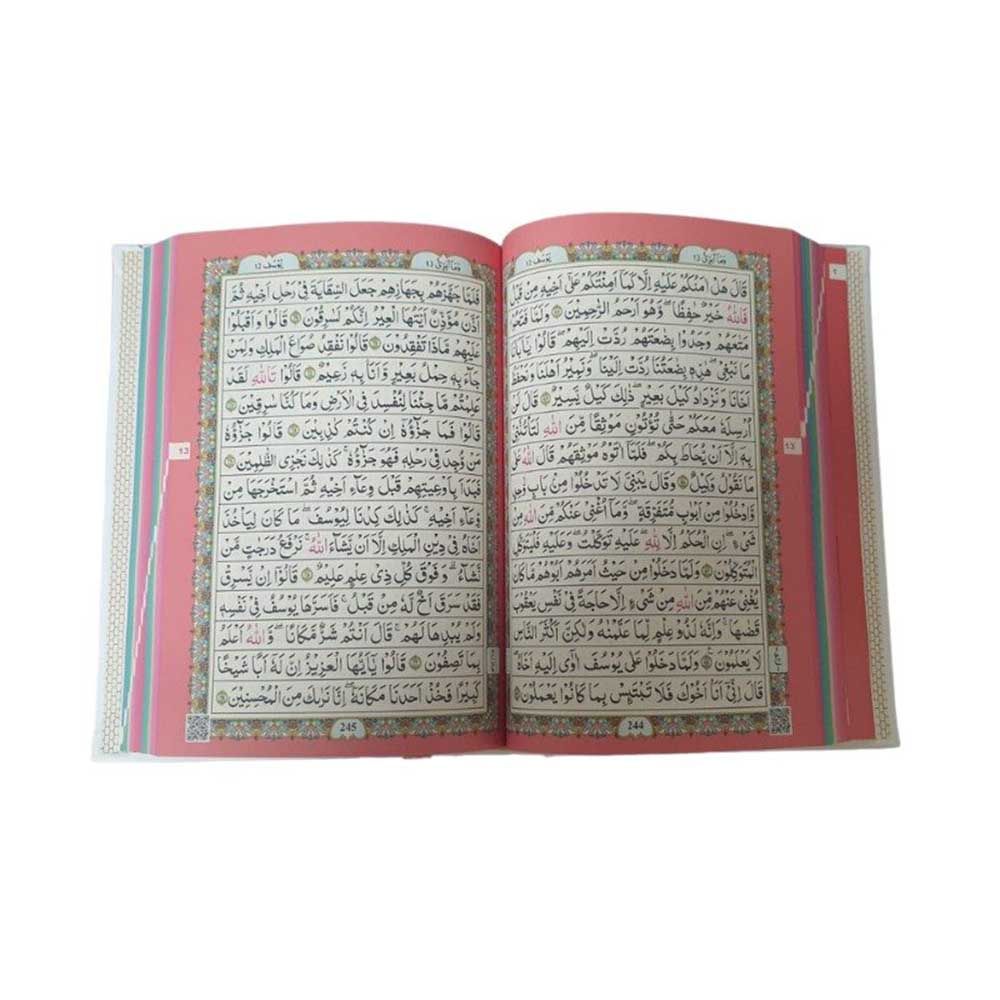 وَمَآ اُبَرِّئُ 13
يُوْسُف 12
قَالَ هَلْ اٰمَنُكُمْ عَلَيْهِ اِلَّا كَمَآ اَمِنْتُكُمْ عَلٰٓى اَخِيْهِ مِنْ قَبْلُ
فَاللّٰهُ خَيْرٌ حٰفِظًا ۪ وَّهُوَ اَرْحَمُ الرّٰحِمِيْنَ ۝ وَلَمَّا فَتَحُوْا
مَتَاعَهُمْ وَجَدُوْا بِضَاعَتَهُمْ رُدَّتْ اِلَيْهِمْ ؕ قَالُوْا يٰۤاَبَانَا
مَا نَبْغِيْ ؕ هٰذِهٖ بِضَاعَتُنَا رُدَّتْ اِلَيْنَا ۚ وَنَمِيْرُ اَهْلَنَا وَنَحْفَظُ
اَخَانَا وَنَزْدَادُ كَيْلَ بَعِيْرٍ ؕ ذٰلِكَ كَيْلٌ يَّسِيْرٌ ۝ قَالَ لَنْ
اُرْسِلَهٗ مَعَكُمْ حَتّٰى تُؤْتُوْنِ مَوْثِقًا مِّنَ اللّٰهِ لَتَاْتُنَّنِيْ
بِهٖٓ اِلَّآ اَنْ يُّحَاطَ بِكُمْ ۚ فَلَمَّآ اٰتَوْهُ مَوْثِقَهُمْ قَالَ اللّٰهُ عَلٰى
مَا نَقُوْلُ وَكِيْلٌ ۝ وَقَالَ يٰبَنِيَّ لَا تَدْخُلُوْا مِنْۢ بَابٍ وَّاحِدٍ
وَّادْخُلُوْا مِنْ اَبْوَابٍ مُّتَفَرِّقَةٍ ؕ وَمَآ اُغْنِيْ عَنْكُمْ مِّنَ اللّٰهِ مِنْ
شَيْءٍ ؕ اِنِ الْحُكْمُ اِلَّا لِلّٰهِ ؕ عَلَيْهِ تَوَكَّلْتُ ۚ وَعَلَيْهِ فَلْيَتَوَكَّلِ
الْمُتَوَكِّلُوْنَ ۝ وَلَمَّا دَخَلُوْا مِنْ حَيْثُ اَمَرَهُمْ اَبُوْهُمْ ؕ مَا كَانَ
يُغْنِيْ عَنْهُمْ مِّنَ اللّٰهِ مِنْ شَيْءٍ اِلَّا حَاجَةً فِيْ نَفْسِ يَعْقُوْبَ
قَضٰىهَا ؕ وَاِنَّهٗ لَذُوْ عِلْمٍ لِّمَا عَلَّمْنٰهُ وَلٰكِنَّ اَكْثَرَ النَّاسِ
لَا يَعْلَمُوْنَ ۝ وَلَمَّا دَخَلُوْا عَلٰى يُوْسُفَ اٰوٰٓى اِلَيْهِ اَخَاهُ
قَالَ اِنِّيْٓ اَنَا اَخُوْكَ فَلَا تَبْتَئِسْ بِمَا كَانُوْا يَعْمَلُوْنَ ۝
244
13
وَمَآ اُبَرِّئُ 13
يُوْسُف 12
فَلَمَّا جَهَّزَهُمْ بِجَهَازِهِمْ جَعَلَ السِّقَايَةَ فِيْ رَحْلِ اَخِيْهِ ثُمَّ
اَذَّنَ مُؤَذِّنٌ اَيَّتُهَا الْعِيْرُ اِنَّكُمْ لَسٰرِقُوْنَ ۝ قَالُوْا وَاَقْبَلُوْا
عَلَيْهِمْ مَّاذَا تَفْقِدُوْنَ ۝ قَالُوْا نَفْقِدُ صُوَاعَ الْمَلِكِ وَلِمَنْ
جَآءَ بِهٖ حِمْلُ بَعِيْرٍ وَّاَنَا بِهٖ زَعِيْمٌ ۝ قَالُوْا تَاللّٰهِ لَقَدْ
عَلِمْتُمْ مَّا جِئْنَا لِنُفْسِدَ فِي الْاَرْضِ وَمَا كُنَّا سٰرِقِيْنَ ۝
قَالُوْا فَمَا جَزَآؤُهٗٓ اِنْ كُنْتُمْ كٰذِبِيْنَ ۝ قَالُوْا جَزَآؤُهٗ
مَنْ وُّجِدَ فِيْ رَحْلِهٖ فَهُوَ جَزَآؤُهٗ ؕ كَذٰلِكَ نَجْزِي الظّٰلِمِيْنَ ۝
فَبَدَاَ بِاَوْعِيَتِهِمْ قَبْلَ وِعَآءِ اَخِيْهِ ثُمَّ اسْتَخْرَجَهَا مِنْ
وِّعَآءِ اَخِيْهِ ؕ كَذٰلِكَ كِدْنَا لِيُوْسُفَ ؕ مَا كَانَ لِيَاْخُذَ
اَخَاهُ فِيْ دِيْنِ الْمَلِكِ اِلَّآ اَنْ يَّشَآءَ اللّٰهُ ؕ نَرْفَعُ دَرَجٰتٍ مَّنْ
نَّشَآءُ ؕ وَفَوْقَ كُلِّ ذِيْ عِلْمٍ عَلِيْمٌ ۝ قَالُوْٓا اِنْ يَّسْرِقْ
فَقَدْ سَرَقَ اَخٌ لَّهٗ مِنْ قَبْلُ ۚ فَاَسَرَّهَا يُوْسُفُ فِيْ نَفْسِهٖ
وَلَمْ يُبْدِهَا لَهُمْ ۚ قَالَ اَنْتُمْ شَرٌّ مَّكَانًا ۚ وَاللّٰهُ اَعْلَمُ
بِمَا تَصِفُوْنَ ۝ قَالُوْا يٰٓاَيُّهَا الْعَزِيْزُ اِنَّ لَهٗٓ اَبًا شَيْخًا
كَبِيْرًا فَخُذْ اَحَدَنَا مَكَانَهٗ ۚ اِنَّا نَرٰىكَ مِنَ الْمُحْسِنِيْنَ ۝
245
13